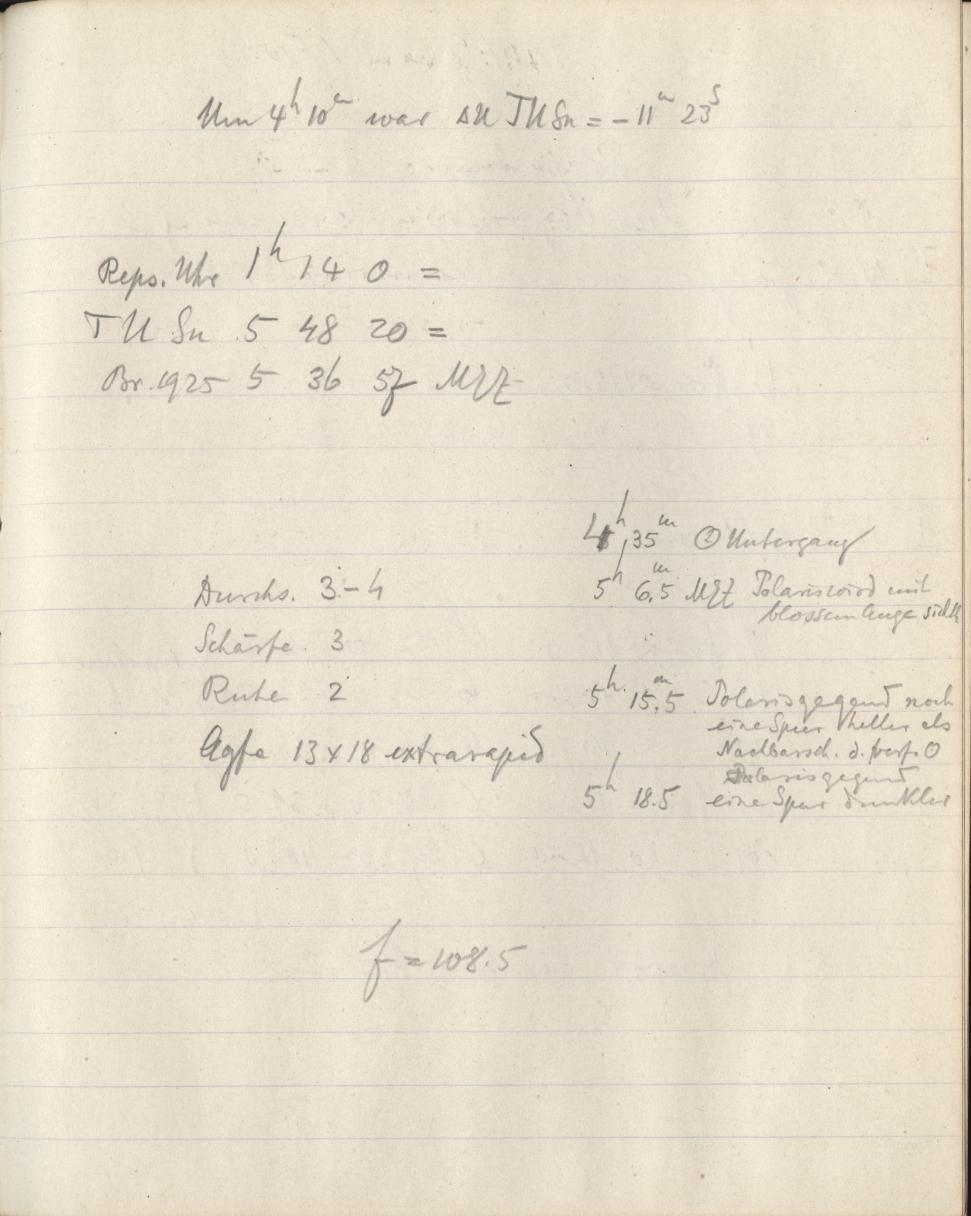 Um 4h 10m war ΔU TU Sn = – 11m 23s
Reps. Uhr 1h 14 0 =
TU Sn 5 48 20 =
Br. 1925 5 36 57 MEZ
4h 35m ☉ Untergang
5h 6.5m MEZ Polaris wird mit
blossem Auge sichtb
Durchs. 3–4
Schärfe 3
Ruhe 2
Agfa 13 x 18 extrarapid
5h 15.5m Polarisgegend noch
eine Spur heller als
Nachbarsch. d. verf. O
Polarisgegend
5h 18.5 eine Spur dunkler
f = 108.5